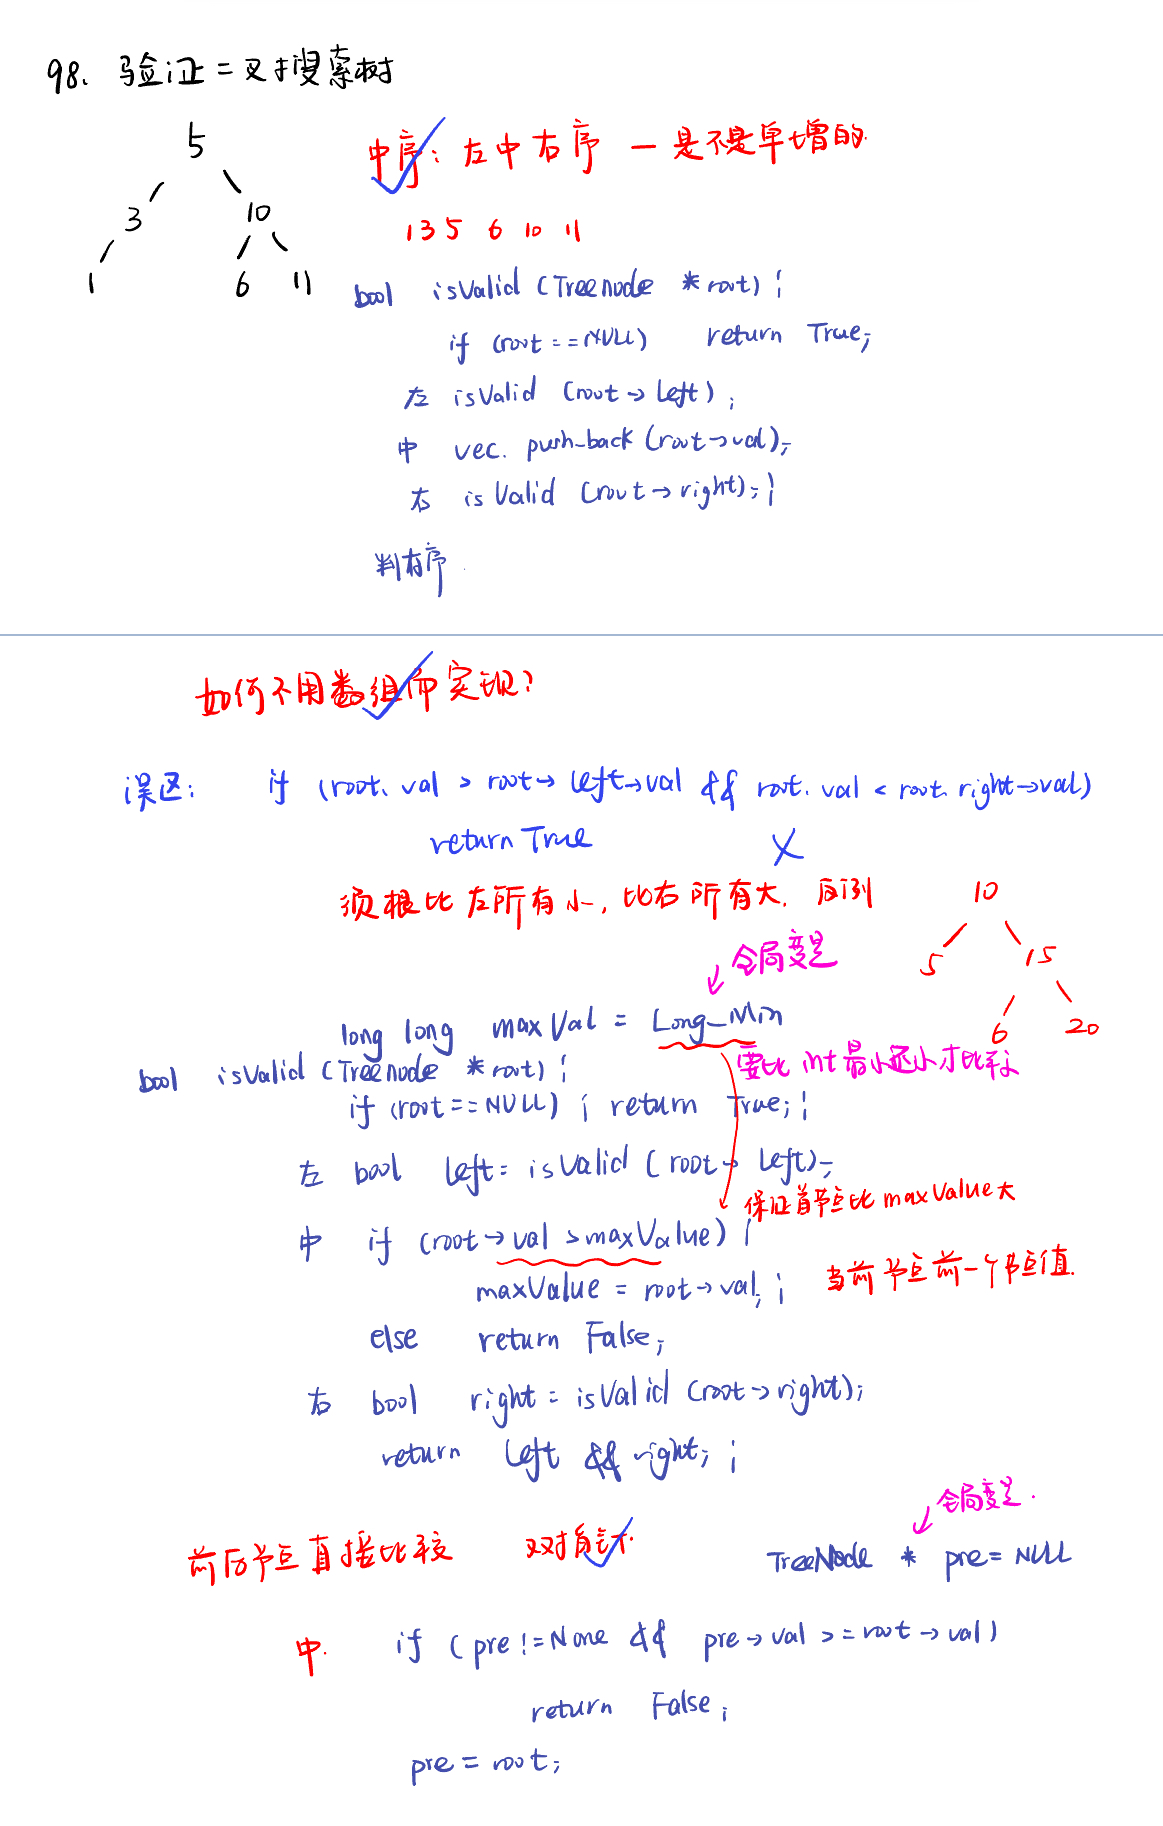 98. 验证二叉搜索树
5
3 10
1 6 11
中序: 左中右序 — 是不是单增的.
1 3 5 6 10 11
bool isValid (Treenode * root) {
if (root == NULL) return True;
左 isValid (root → left);
中 vec. push_back (root → val);
右 isValid (root → right); }
判有序.
如何不用数组而实现?
误区: if (root. val > root → left → val && root. val < root. right → val)
return True ×
须根比左所有小, 比右所有大. 反例
10
5 15
6 20
全局变量
long long maxVal = Long_Min
要比 int 最小还小才比较
bool isValid (Treenode * root) {
if (root == NULL) { return True; }
左 bool left = isValid (root → left);
保证首节点比 maxValue 大
中 if (root → val > maxValue) {
maxValue = root → val; }
当前节点前一个节点值.
else return False;
右 bool right = isValid (root → right);
return left && right; }
全局变量.
前后节点直接比较 双指针.
TreeNode * pre = NULL
中. if (pre != None && pre → val >= root → val)
return False;
pre = root;